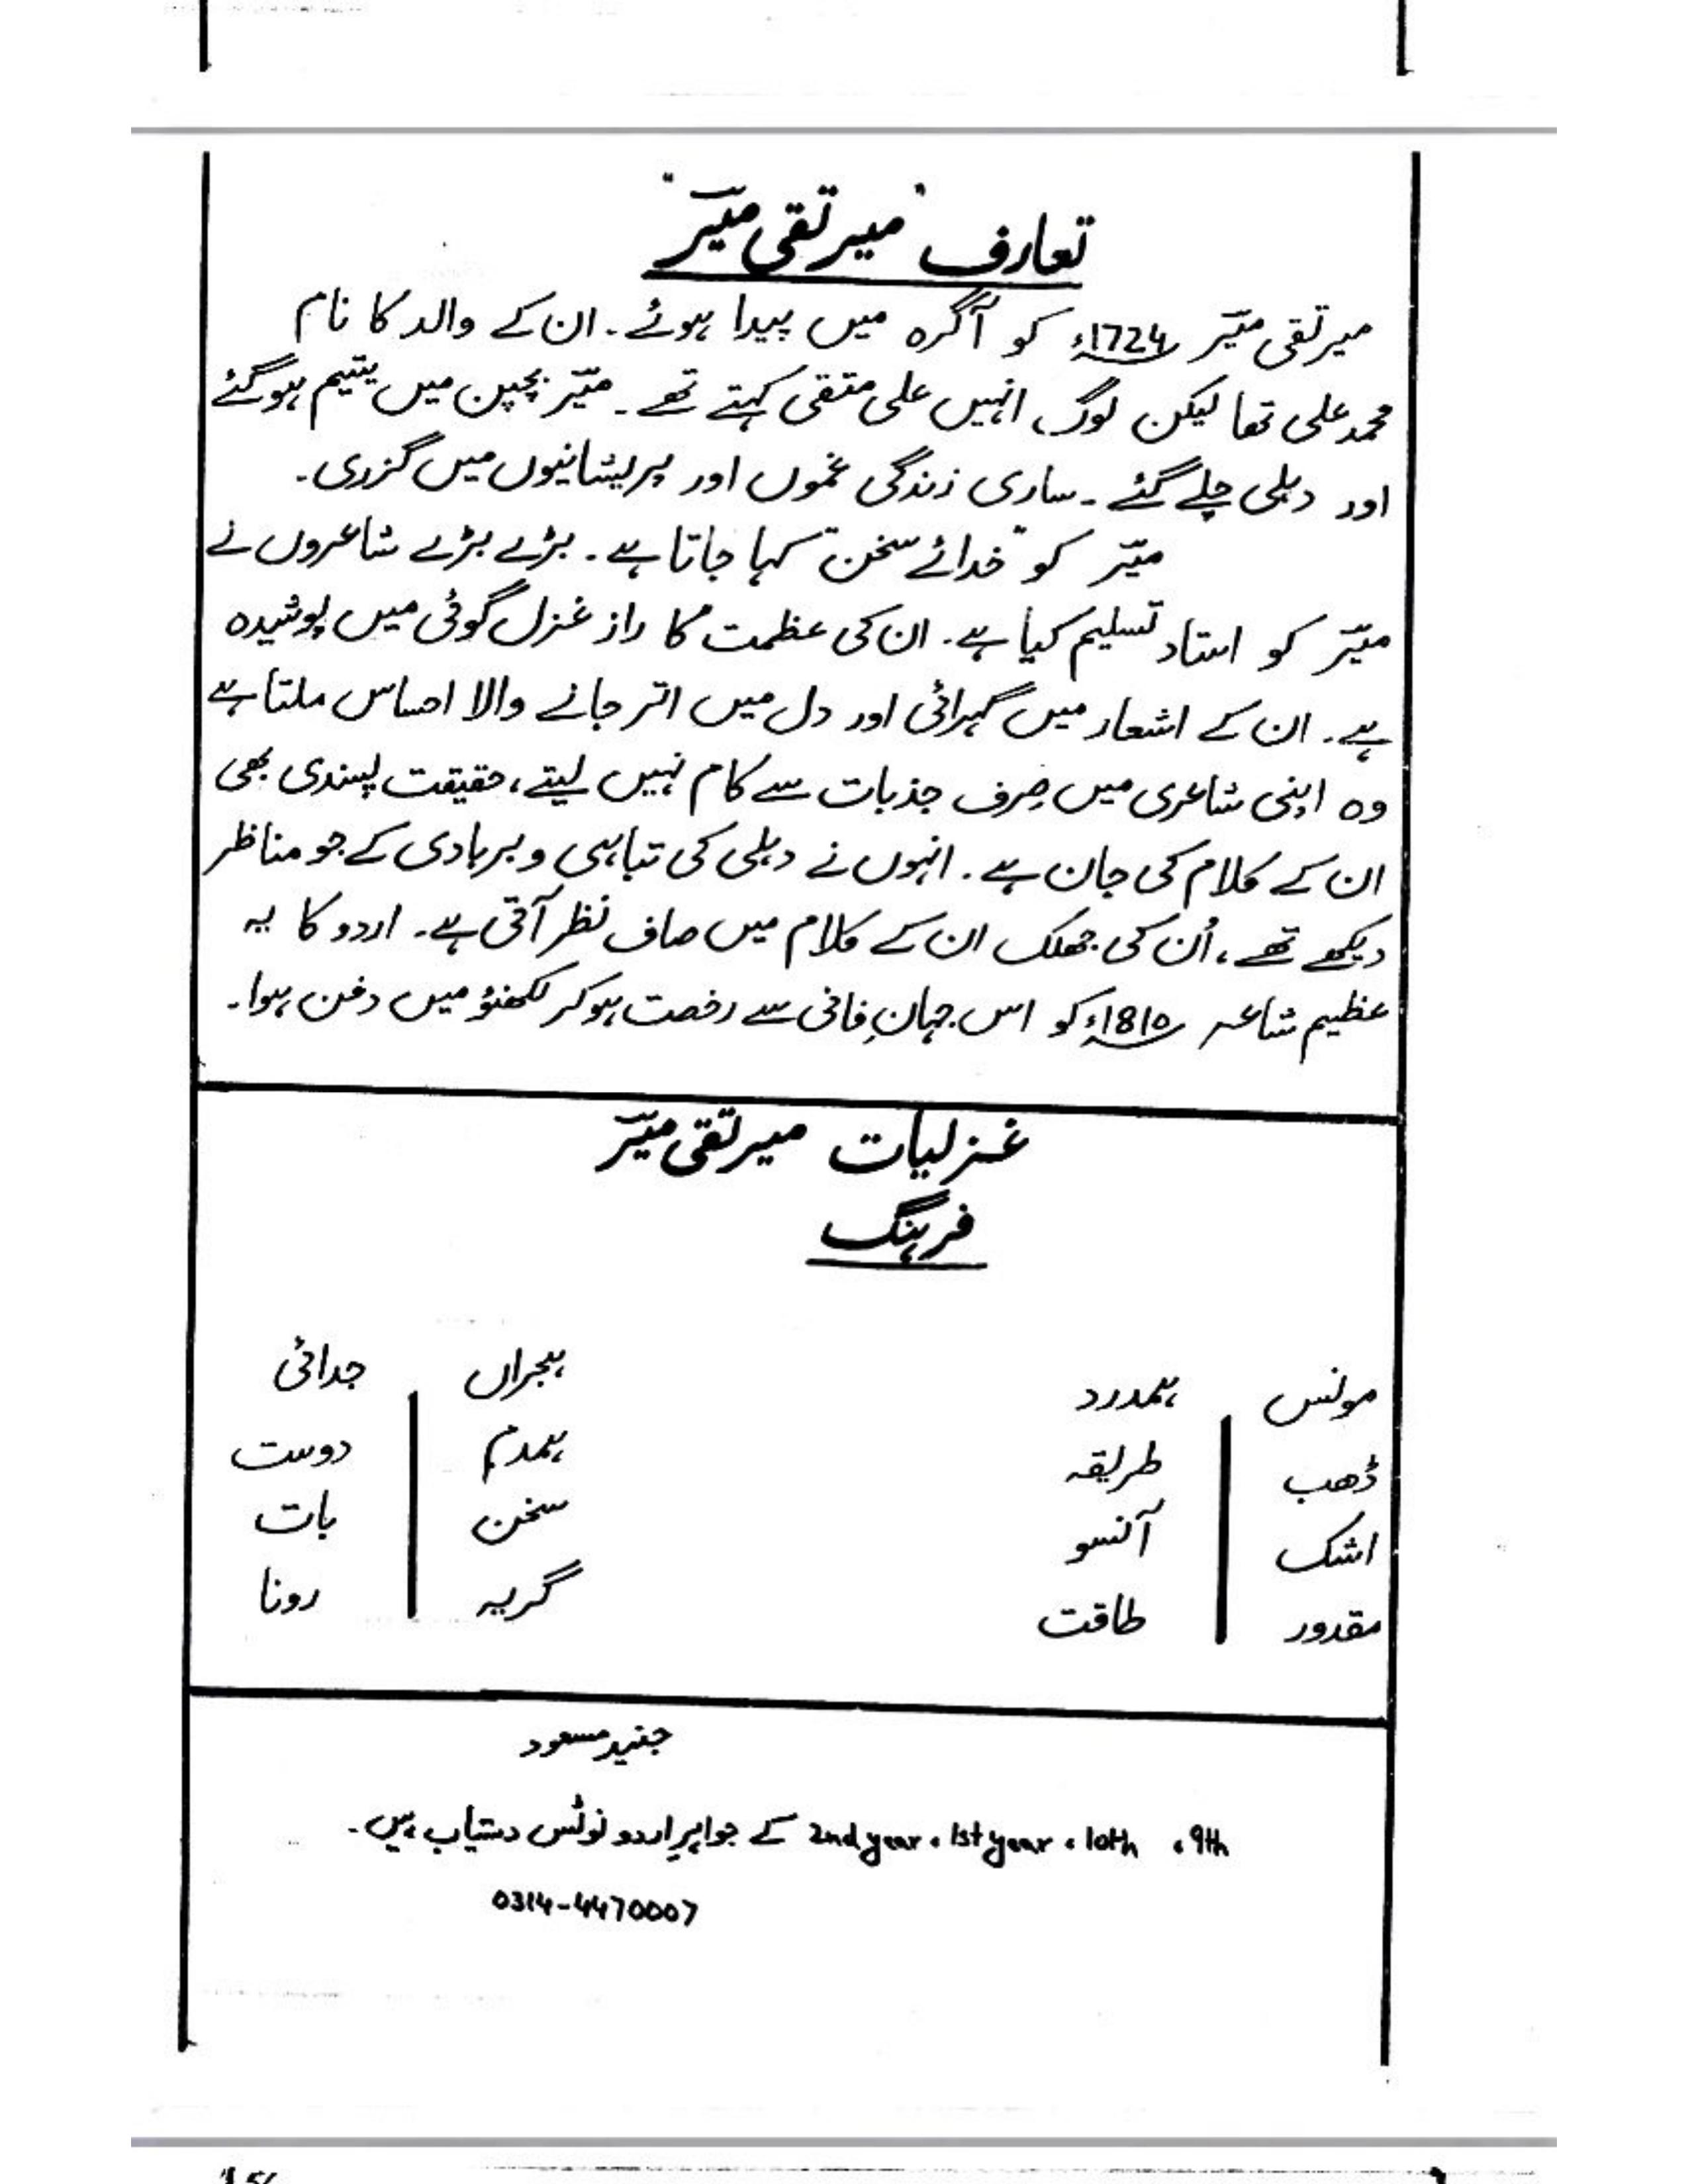 تعارف "میر تقی میرؔ"
میر تقی میرؔ 1724ء کو آگرہ میں پیدا ہوئے۔ ان کے والد کا نام
محمد علی تھا لیکن لوگ انہیں علی متقی کہتے تھے۔ میرؔ بچپن میں یتیم ہوگئے
اور دہلی چلے گئے۔ ساری زندگی غموں اور پریشانیوں میں گزری۔
میرؔ کو "خدائے سخن" کہا جاتا ہے۔ بڑے بڑے شاعروں نے
میرؔ کو استاد تسلیم کیا ہے۔ ان کی عظمت کا راز غزل گوئی میں پوشیدہ
ہے۔ ان کے اشعار میں گہرائی اور دل میں اتر جانے والا احساس ملتا ہے
وہ اپنی شاعری میں صِرف جذبات سے کام نہیں لیتے، حقیقت پسندی بھی
ان کے کلام کی جان ہے۔ انہوں نے دہلی کی تباہی و بربادی کے جو مناظر
دیکھے تھے، اُن کی جھلک ان کے کلام میں صاف نظر آتی ہے۔ اردو کا یہ
عظیم شاعر 1810ء کو اس جہانِ فانی سے رخصت ہوکر لکھنؤ میں دفن ہوا۔
غزلیات میر تقی میرؔ
فرہنگ
مونس ہمدرد ہجراں جدائی
ڈھب طریقہ ہمدم دوست
اشک آنسو سخن بات
مقدور طاقت گریہ رونا
جنید مسعود
9th، 10th، 1st year، 2nd year کے جواہرِ اردو نوٹس دستیاب ہیں۔
0314-4470007